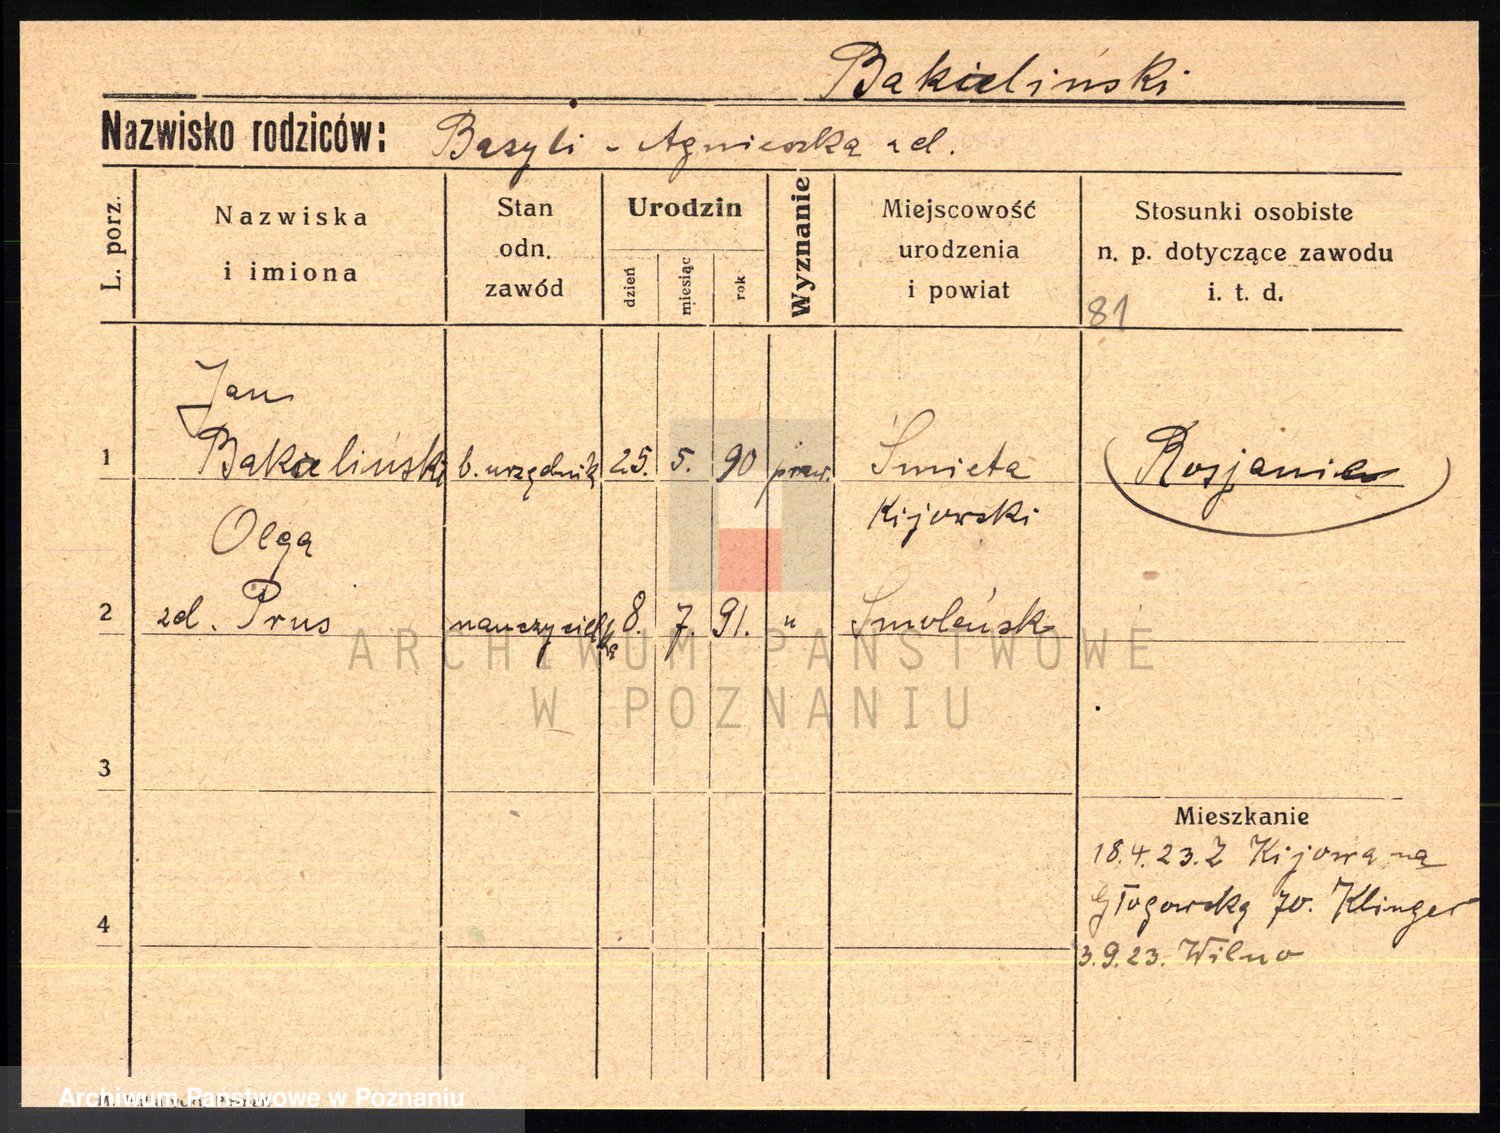 Bakieliński
Nazwisko rodziców: Bazyli - Agnieszka zd.
L. porz.
Nazwiska
i imiona
Stan
odn.
zawód
Urodzin
dzień
miesiąc
rok
Wyznanie
Miejscowość
urodzenia
i powiat
Stosunki osobiste
n. p. dotyczące zawodu
i. t. d.
81
Jan
1 Bakieliński b. urzędnik 25. 5. 90 praw. Śmieta Rosjanie
Kijowski
Olga
2 zd. Prus nauczycielka 8. 7. 91. " Smoleńsk
3
Mieszkanie
18.4.23. Z Kijowa na
Głogowską 70. Klinger
4
3.9.23. Wilno
ARCHIWUM PAŃSTWOWE
W POZNANIU
Archiwum Państwowe w Poznaniu